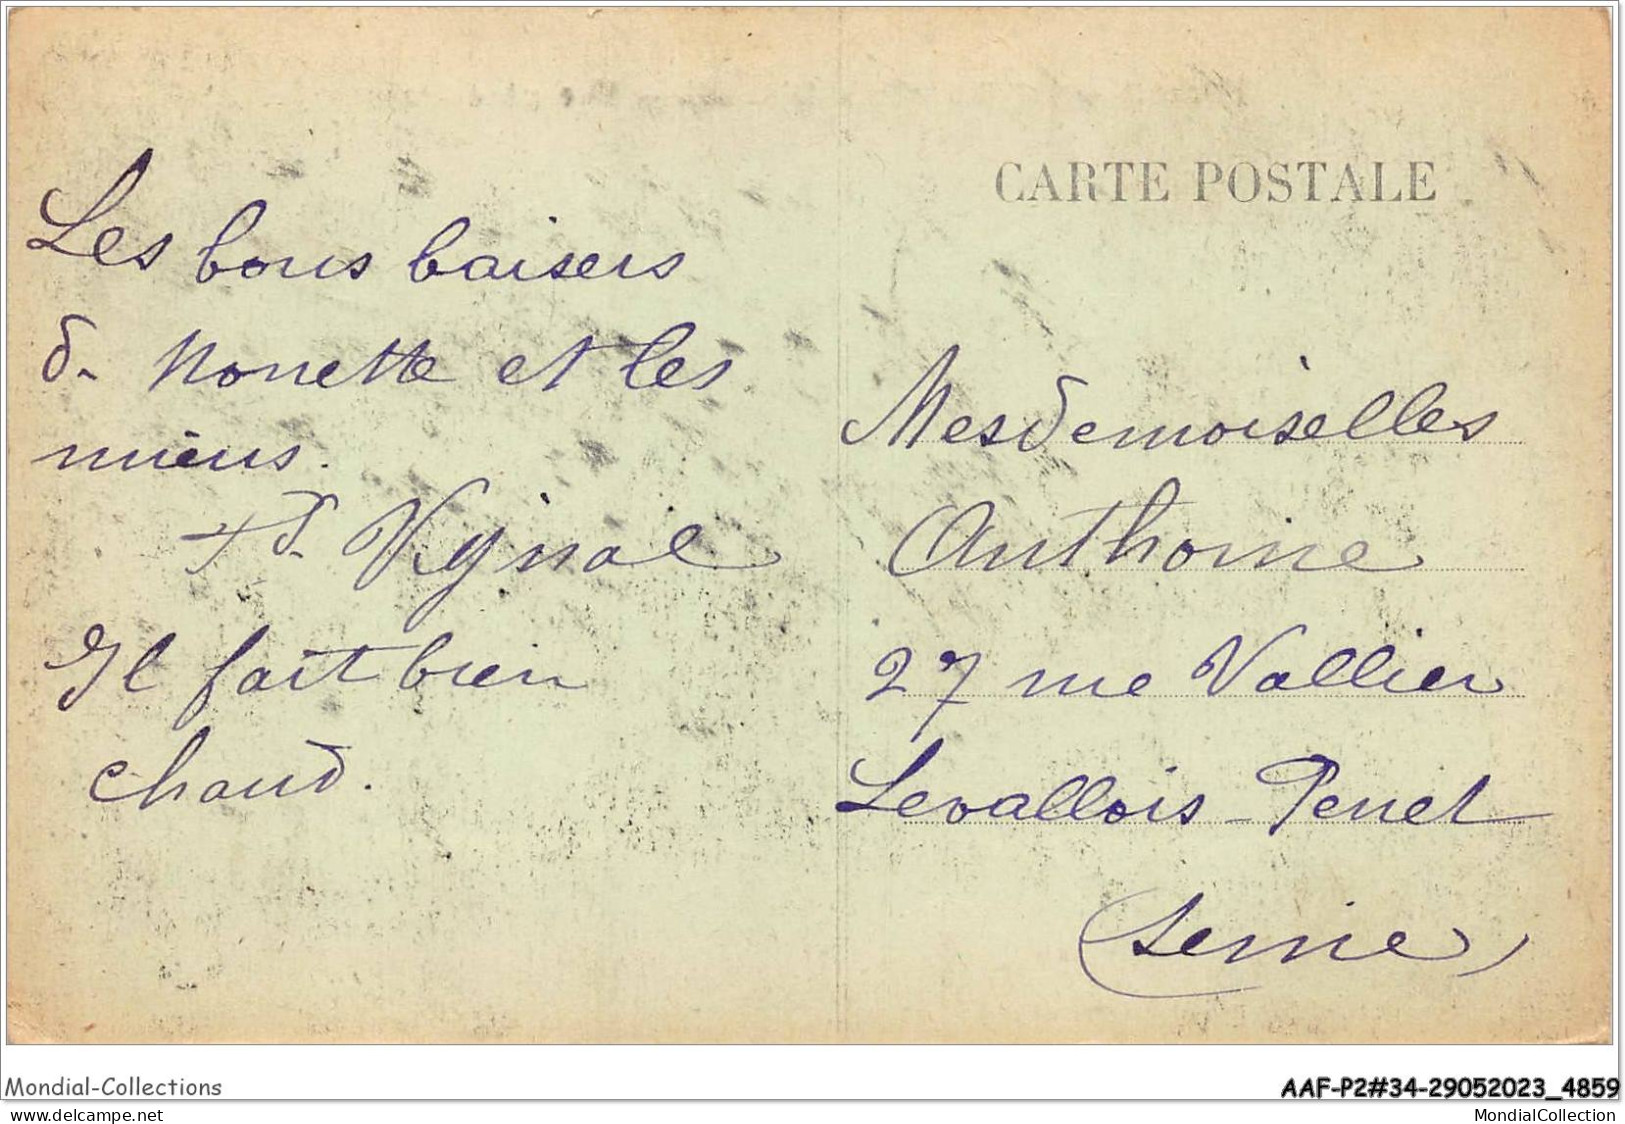 CARTE POSTALE
Les bons baisers
de Nonette et les
miens.
Vignal
Il fait bien
chaud.
Mesdemoiselles
Anthoine
27 rue Vallier
Levallois-Perret
(Seine)
Mondial-Collections
www.delcampe.net
AAF-P2#34-29052023_4859
MondialCollection